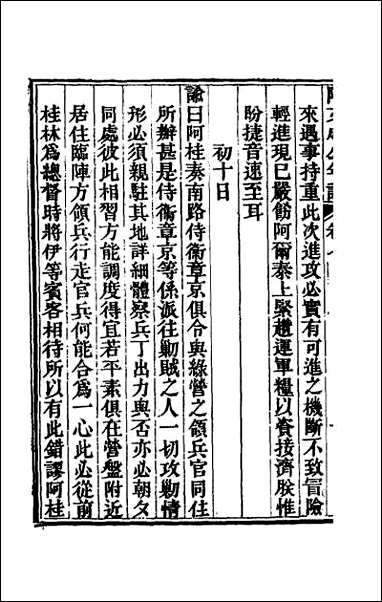 來遇事持重此次進攻必實有可進之機斷不致冒險
輕進現已嚴飭阿爾泰上緊趲運軍糧以資接濟朕惟
盼捷音速至耳
初十日
諭曰阿桂奏南路侍衛章京俱令與綠營之領兵官同住
所辦甚是侍衛章京等係派往勦賊之人一切攻勦情
形必須親駐其地詳細體察兵丁出力與否亦必朝夕
同處彼此相習方能調度得宜若平素俱在營盤附近
居住臨陣方領兵行走官兵何能合爲一心此必從前
桂林爲總督時將伊等賓客相待所以有此錯謬阿桂